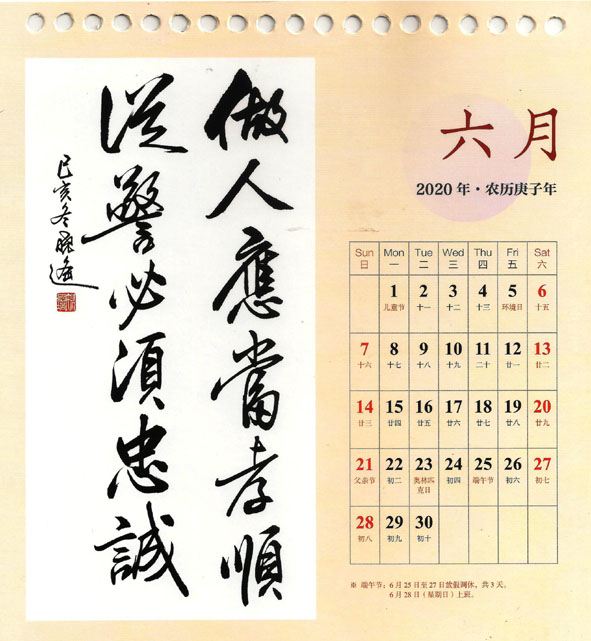 做人應當孝順
從警必須忠誠
己亥冬
六月
2020 年·农历庚子年
Sun Mon Tue Wed Thu Fri Sat
日 一 二 三 四 五 六
1 2 3 4 5 6
儿童节 十一 十二 十三 环境日 十五
7 8 9 10 11 12 13
十六 十七 十八 十九 二十 廿一 廿二
14 15 16 17 18 19 20
廿三 廿四 廿五 廿六 廿七 廿八 廿九
21 22 23 24 25 26 27
父亲节 初二 奥林匹克日 初四 端午节 初六 初七
28 29 30
初八 初九 初十
※ 端午节：6 月 25 日至 27 日放假调休，共 3 天。
6 月 28 日（星期日）上班。